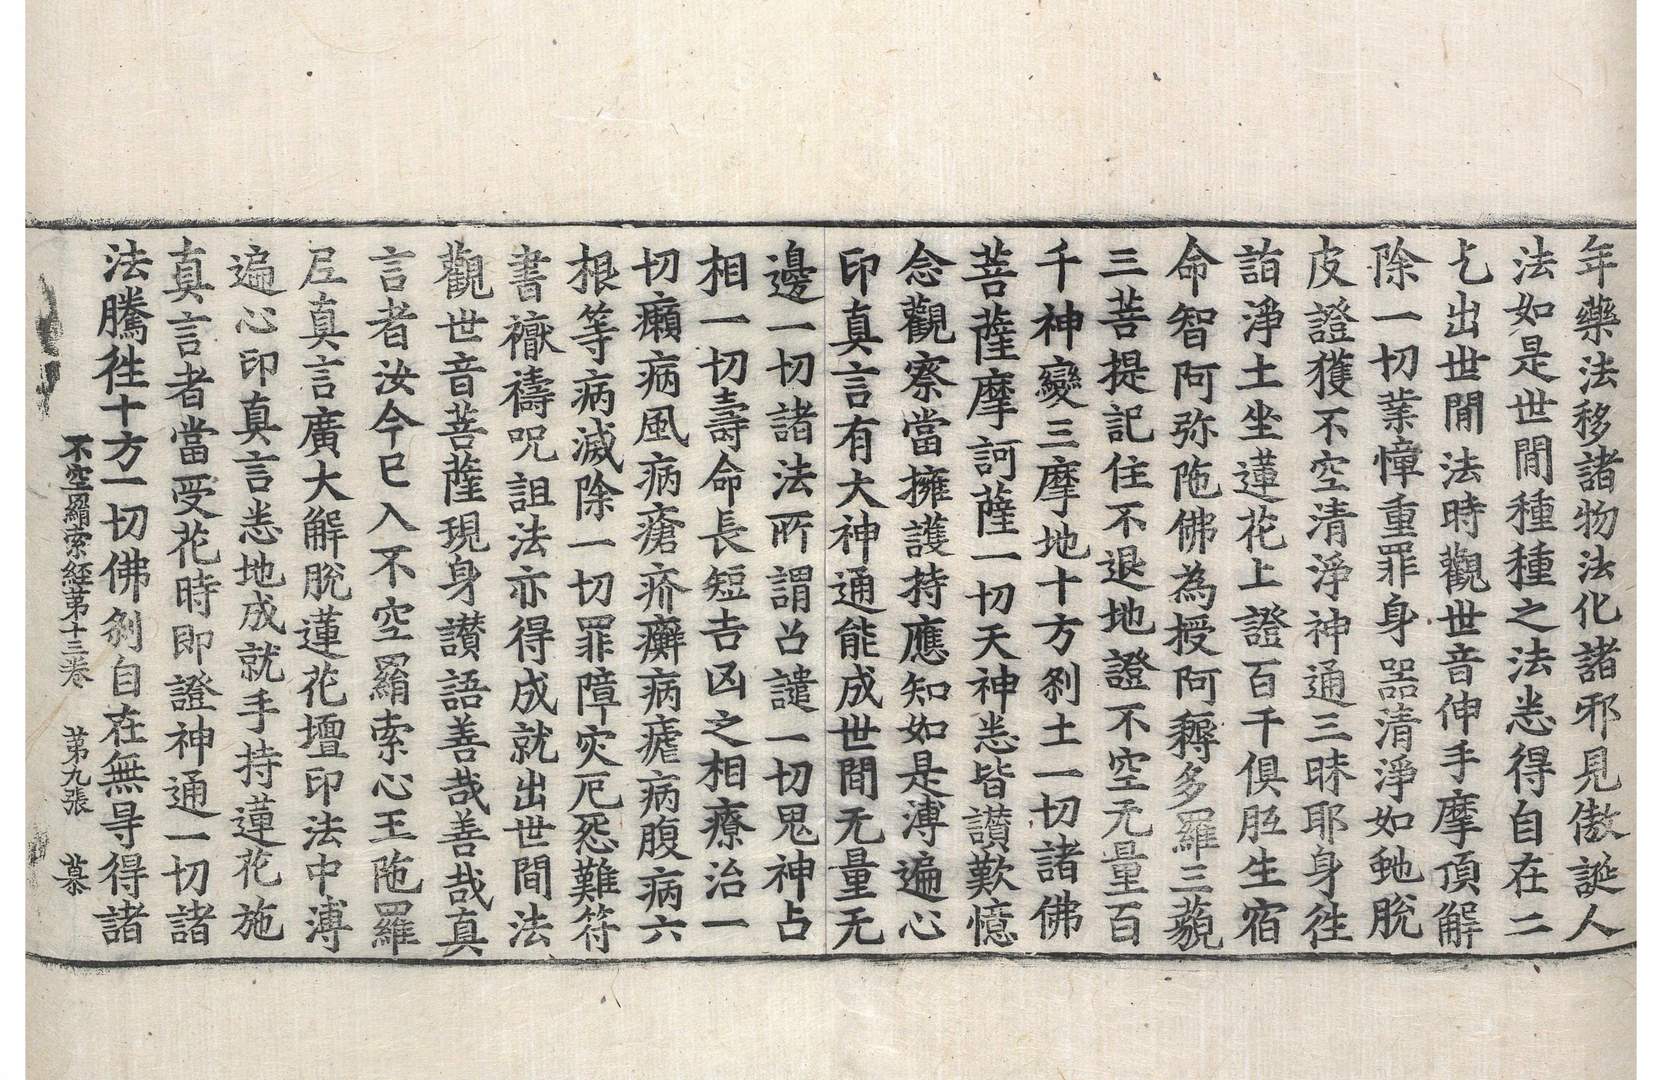 年藥法移諸物法化諸邪見傲誕人
法如是世閒種種之法悉得自在二
乞出世閒法時觀世音伸手摩頂解
除一切業憧重罪身器清淨如虵脫
皮證獲不空清淨神通三昧耶身往
詣淨土坐蓮花上證百千俱胝生宿
命智阿弥陁佛為授阿耨多羅三藐
三菩提記住不退地證不空无量百
千神變三摩地十方剎土一切諸佛
菩薩摩訶薩一切天神悉皆讃歎憶
念觀察當擁護持應知如是溥遍心
印真言有大神通能成世間无量无
邊一切諸法所謂召譴一切鬼神占
相一切壽命長短吉凶之相療治一
切癩病風病瘡疥癬病瘧病腹病六
根等病滅除一切罪障灾厄惡難符
書禳禱呪詛法亦得成就出世間法
觀世音菩薩現身讃語善哉善哉真
言者汝今已入不空羂索心王陁羅
尼真言廣大解脫蓮花壇印法中溥
遍心印真言悉地成就手持蓮花施
真言者當受花時即證神通一切諸
法騰往十方一切佛剎自在無㝵得諸
不空羂索經第十三卷 第九張 慕